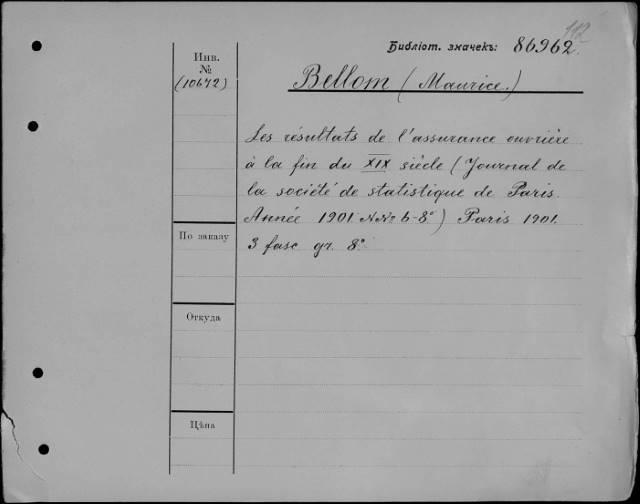 112
Библіот. значекъ: 86962.
Инв.
№
(10672)
Bellom (Maurice.)
Les résultats de l'assurance ouvrière
à la fin du XIX siècle (Journal de
la société de statistique de Paris.
Année 1901 NNo 6-8°) Paris 1901.
3 fasc gr. 8°.
По заказу
Откуда
Цѣна